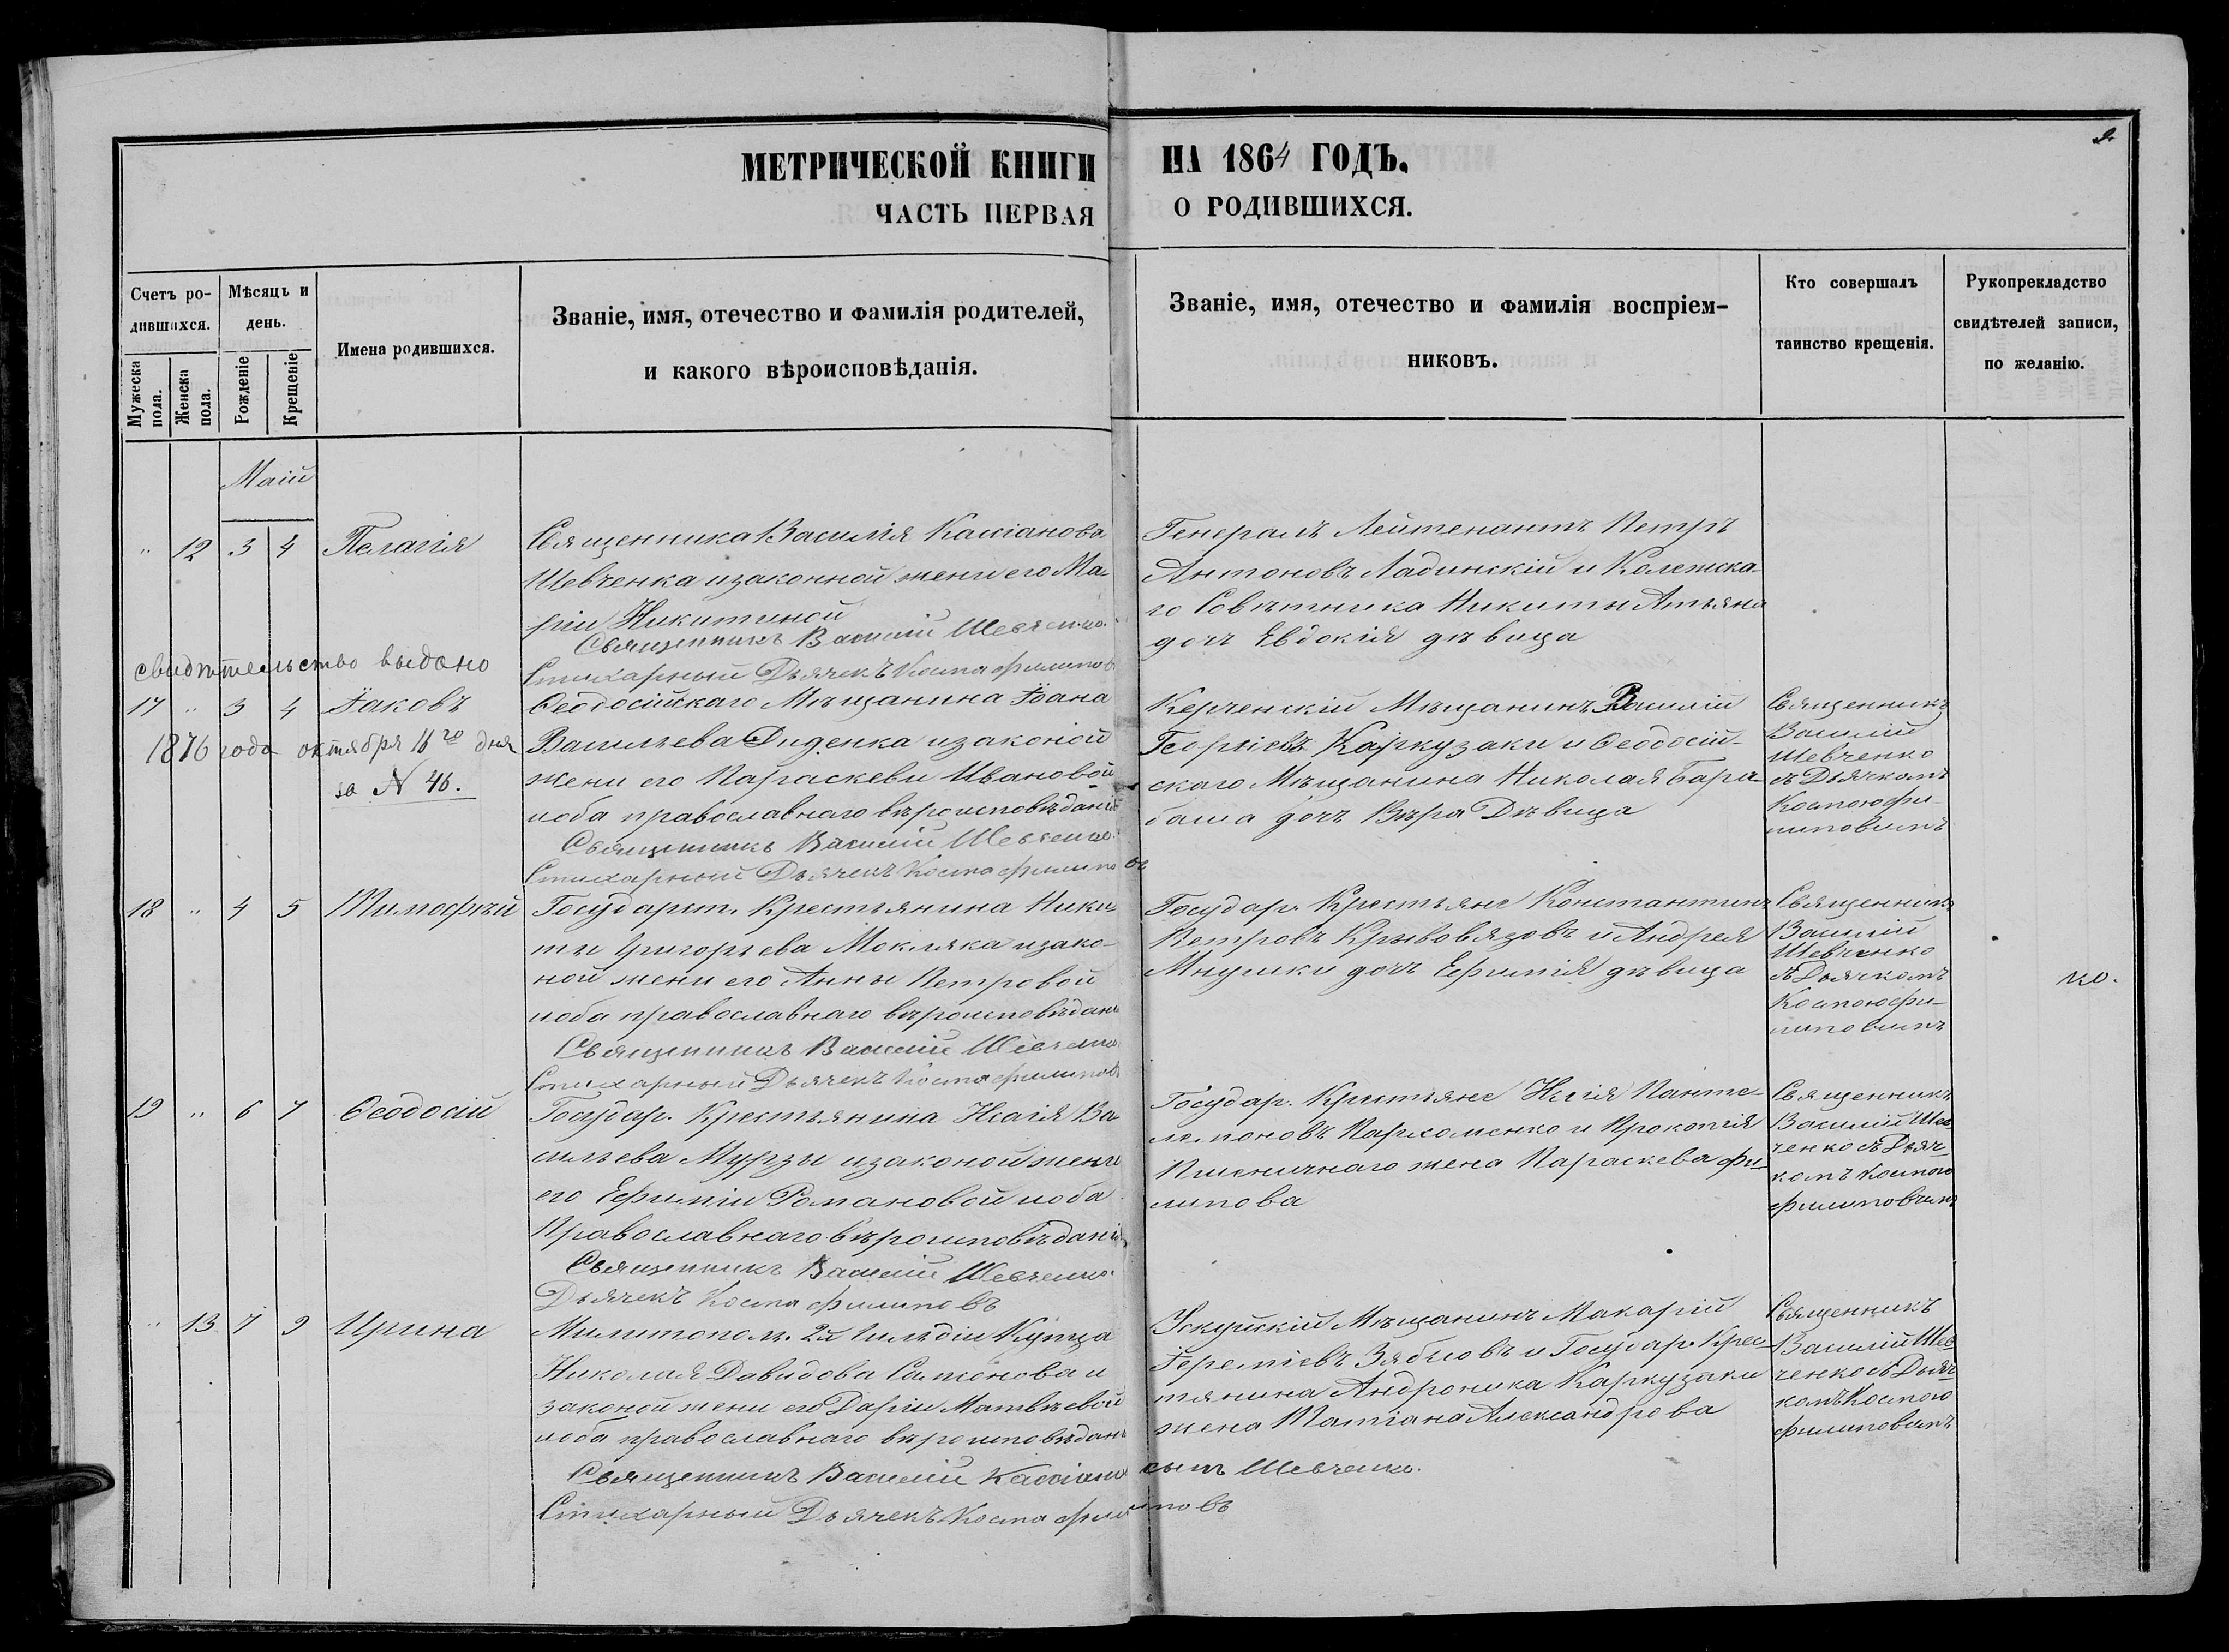 МЕТРИЧЕСКОЙ КНИГИ НА 1864 ГОДЪ.
ЧАСТЬ ПЕРВАЯ О РОДИВШИХСЯ.
Счетъ ро-
дившихся.
Мужеска
пола.
Женска
пола.
Мѣсяцъ и
день.
Рожденіе
Крещеніе
Имена родившихся.
Званіе, имя, отечество и фамилія родителей,
и какого вѣроисповѣданія.
Званіе, имя, отечество и фамилія воспріем-
никовъ.
Кто совершалъ
таинство крещенія.
Рукопрекладство
свидѣтелей записи,
по желанію.
Маій
" 12 3 4 Пелагія
Священника Василія Кассіанова
Шевченка и законной жени его Ма-
ріи Никитиной
Священникъ Василій Шевченко.
Стихарный Дьячекъ Коста Филиповъ
Генералъ Лейтенантъ Петръ
Антоновъ Ладинскій и Колежска-
го Совѣтника Никиты
дочъ Евдокія дѣвица
свидѣтельство выдано
17 " 3 4 Іаковъ
1876 года октября 16го дня
за N 46.
Ѳеодосійскаго Мѣщанина Іоана
Васильева Диденка и законой
жени его Параскеви Ивановой
иоба православнаго вѣроисповѣданія
Священникъ Василій Шевченко.
Стихарный Дьячекъ Коста Филиповъ
Керченскій Мѣщанинъ Василій
Георгіевъ Каркузаки и Ѳеодосій-
скаго Мѣщанина Николая Бара-
баша дочъ Вѣра Дѣвица
Священникъ
Василій
Шевченко
съ Дьячкомъ
Костою Фи-
липовимъ
18 " 4 5 Тимофѣй
Государст. Крестьянина Ники-
ты Григорьева Мокляка и зако-
ной жени его Анны Петровой
иоба православнаго вѣроисповѣдані
Священникъ Василій Шевченко
Стихарный Дьячекъ Коста Филиповъ
Государ. Крестьяне Константинъ
Петровъ Крывовязовъ и Андрея
дочъ Ефимія дѣвица
Священникъ
Василій
Шевченко
съ Дьячкомъ
Костою Фи-
липовимъ
ко.
19 " 6 7 Ѳеодосій
Государ. Крестьянина Исаія Ва-
сильева Мурзы и законой жени
его Ефиміи Романовой иоба
Православнаго вѣроисповѣданія
Священникъ Василій Шевченко.
Дьячекъ Коста Филиповъ
Государ. Крестьяне Илія Панте-
лемоновъ Пархоменко и Прокопія
Пшеничнаго жена Параскева Фи-
липова
Священникъ
Василій Шев
ченко съ Дьяч
комъ Костою
Филиповимъ
" 13 7 9 Ирина
Милитопол. 2й Гильдіи Купца
Николая Давидова Сатонова и
законой жени его Даріи Матвѣевой
иоба православнаго вѣроисповѣдан
Священникъ Василій Кассіановъ сынъ Шевченко.
Стихарный Дьячекъ Коста Филиповъ
Мѣщанинъ Макарій
Іереміевъ Зябловъ и Государ. Крес-
тянина Андроника Каркузаки
жена Татіана Александрова
Священникъ
Василій Шев
ченко съ Дьяч
комъ Костою
Филиповимъ